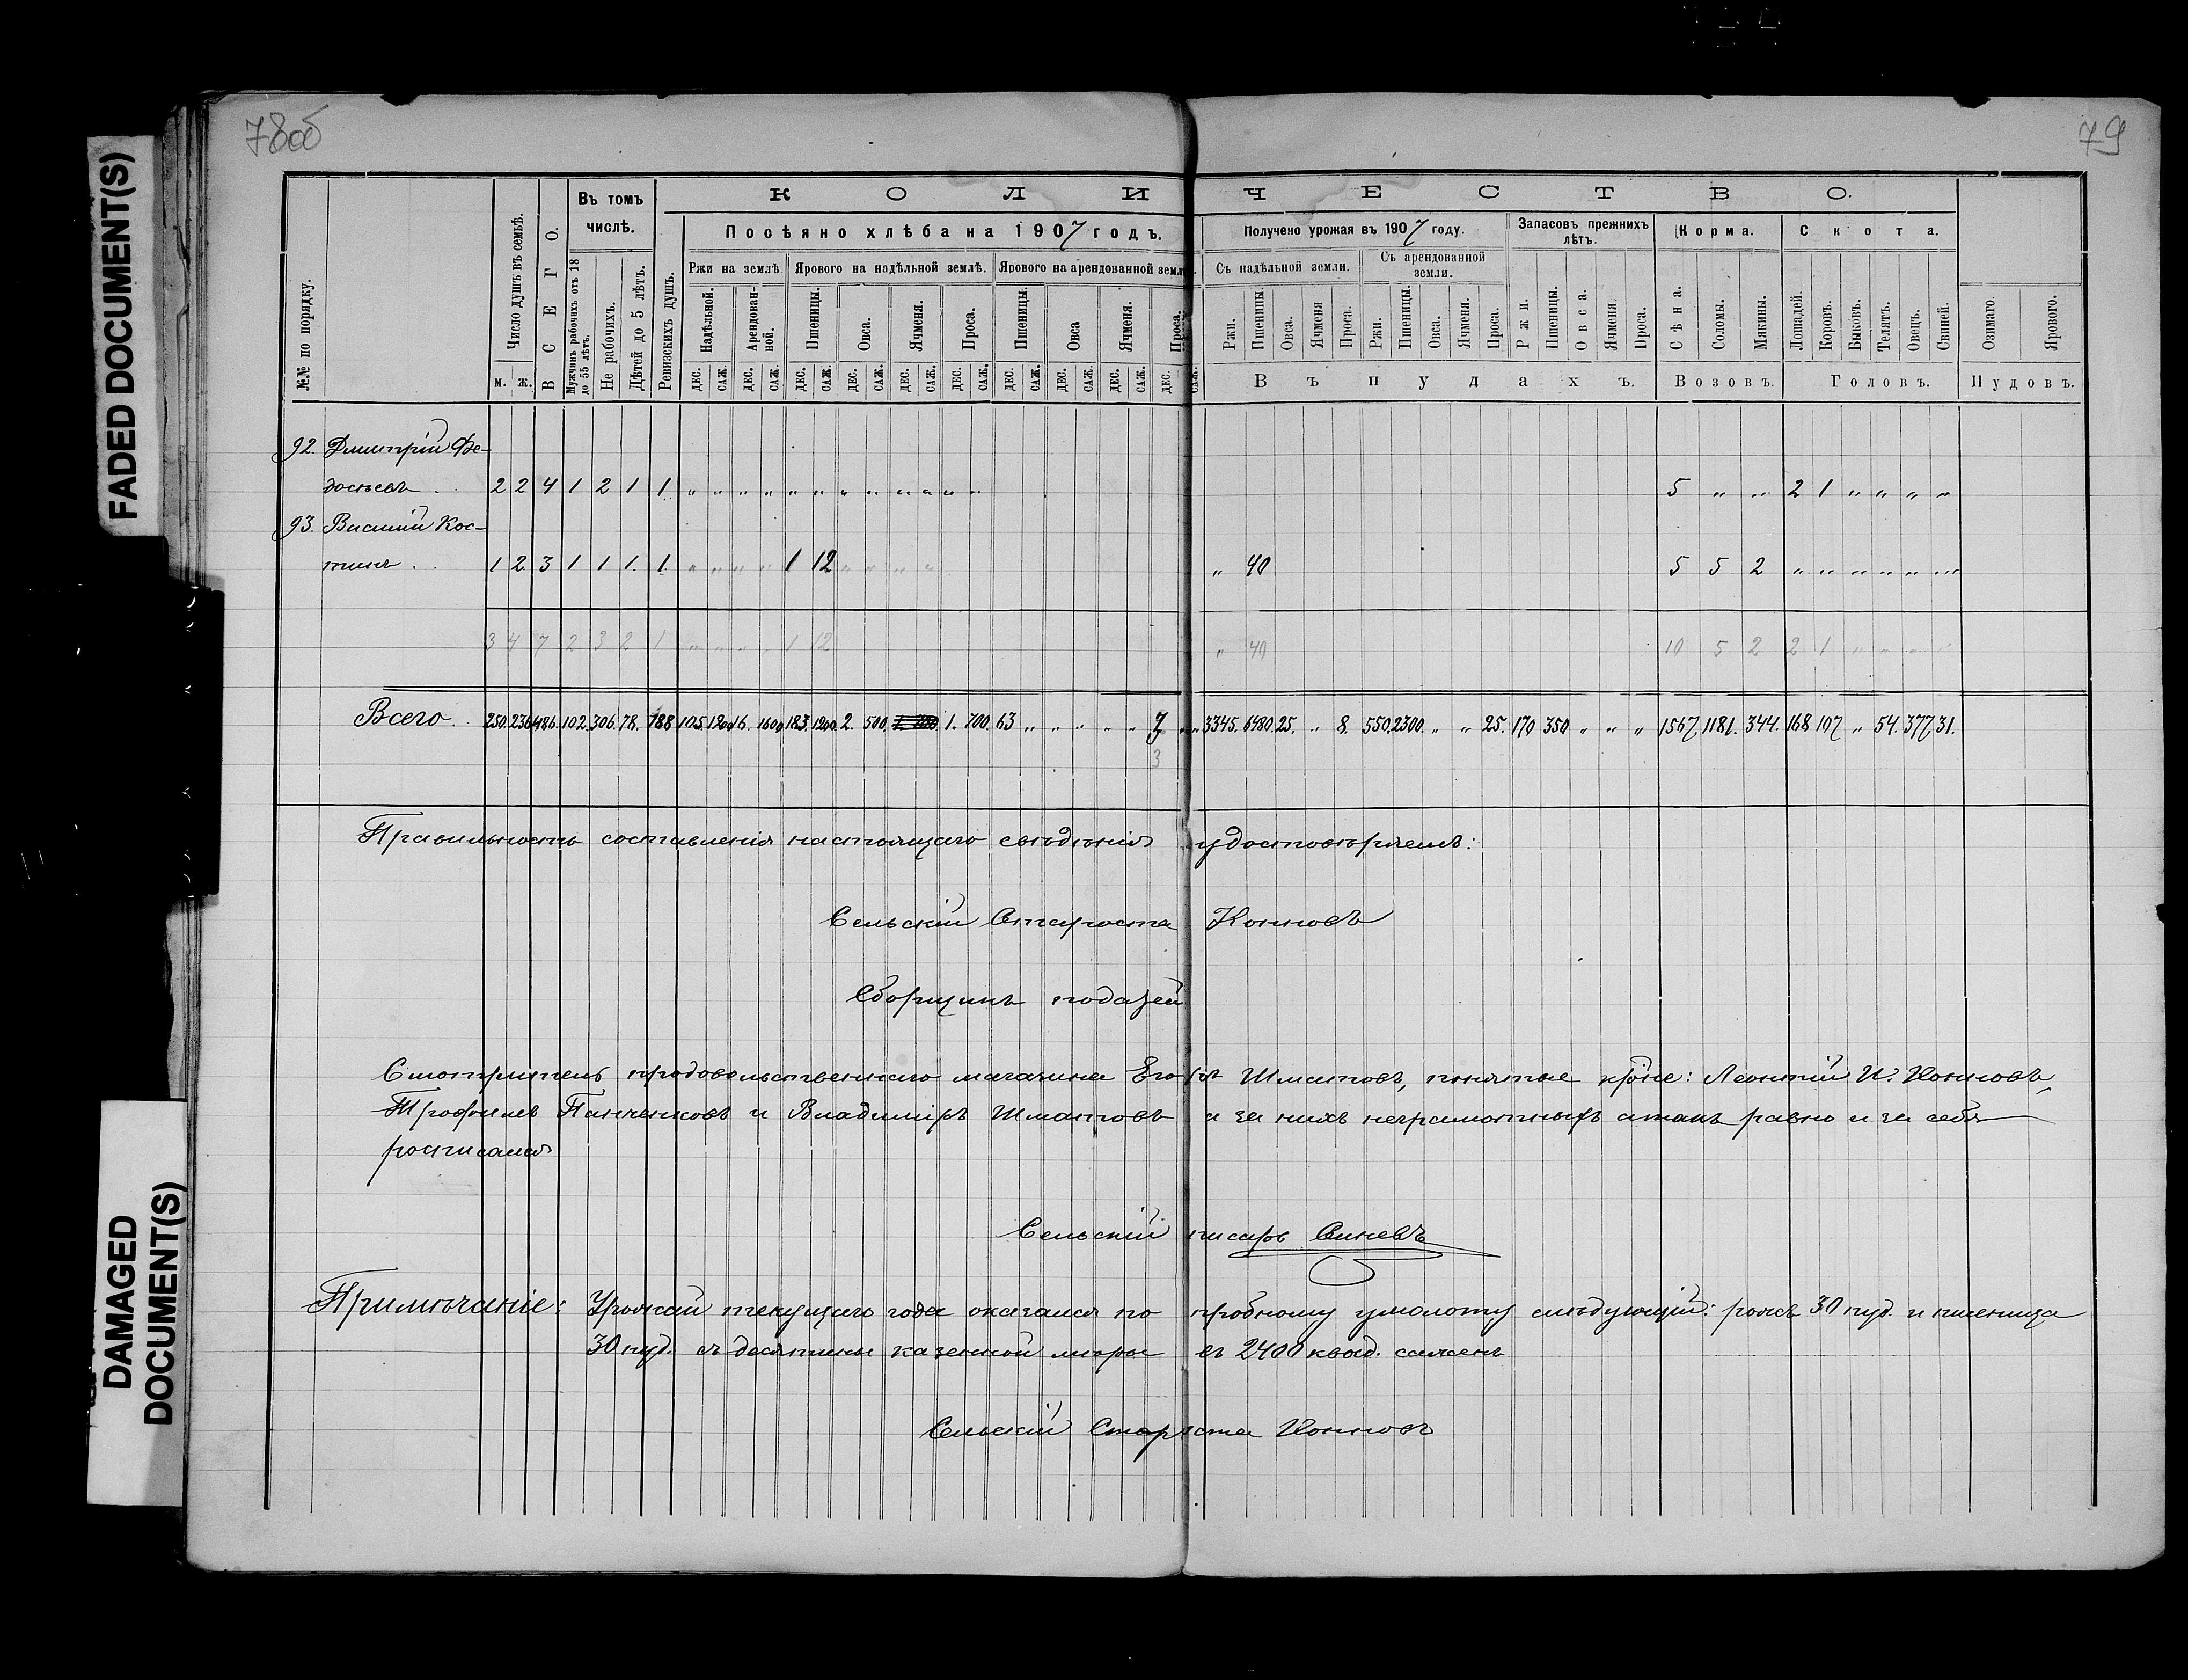 78об
79
FADED DOCUMENT(S)
DAMAGED DOCUMENT(S)
К О Л И Ч Е С Т В О.
№№ по порядку.
Число душъ въ семьѣ.
м. ж.
В С Е Г О.
Въ томъ числѣ.
Мужчинъ рабочихъ отъ 18 до 55 лѣтъ.
Не рабочихъ.
Дѣтей до 5 лѣтъ.
Ревизскихъ душъ.
Посѣяно хлѣба на 1907 годъ.
Ржи на землѣ
Надѣльной.
Арендованной.
Яроваго на надѣльной землѣ.
Пшеницы. Овса. Ячменя. Проса.
Яроваго на арендованной земл
Пшеницы. Овса Ячменя. Проса.
дес. саж. дес. саж. дес. саж. дес. саж. дес. саж. дес. саж. дес. саж. дес. саж. дес. саж. дес. саж.
Получено урожая въ 1907 году.
Съ надѣльной земли.
Ржи. Пшеницы Овса. Ячменя Проса.
Съ арендованной земли.
Ржи. Пшеницы. Овса. Ячменя. Проса.
Запасовъ прежнихъ лѣтъ.
Ржи. Пшеницы. Овса. Ячменя. Проса.
Въ пудахъ.
Корма.
Сѣна. Соломы. Мякины.
Возовъ.
Скота.
Лошадей. Коровъ. Быковъ. Телятъ. Овецъ. Свиней.
Головъ.
Озимаго. Яроваго.
Пудовъ.
92. Дмитрій Фе-
досѣевъ . . 2 2 4 1 2 1 1 " " " " " " " " " " " " 5 " " 2 1 " " " "
93. Василій Кос-
тинъ . . 1 2 3 1 1 1. 1. " " " " 1 12 " " " " " 40 5 5 2 " " " " " "
3 4 7 2 3 2 1 " " " " 1 12 " 40 10 5 2 2 1 " " " "
Всего . . 250. 236 486. 102. 306. 78. 188 105. 1200 16. 1600 183. 1200. 2. 500. 1. 700. 63 " " " " " " " 3345. 6480. 25. " 8. 550. 2300. " " 25. 170 350 " " " 1567. 1181. 344. 168 107 " 54. 377. 31.
3
Правильность составленія настоящаго свѣдѣнія удостовѣряемъ:
Сельскій Староста Конновъ
Сборщикъ податей
Смотритель продовольственнаго магазина Егоръ Шматовъ, понятые кр-не: Леонтій И. Конновъ,
Трофимъ Панченковъ и Владиміръ Шматовъ а за нихъ неграмотныхъ а такъ равно и за себя
росписался
Сельскій писарь Синевъ
Примѣчаніе: Урожай текущаго года оказался по пробному умолоту слѣдующій: рожь 30 пуд. и пшеница
30 пуд. съ десятины казенной мѣры въ 2400 квад. сажень
Сельскій Староста Конновъ